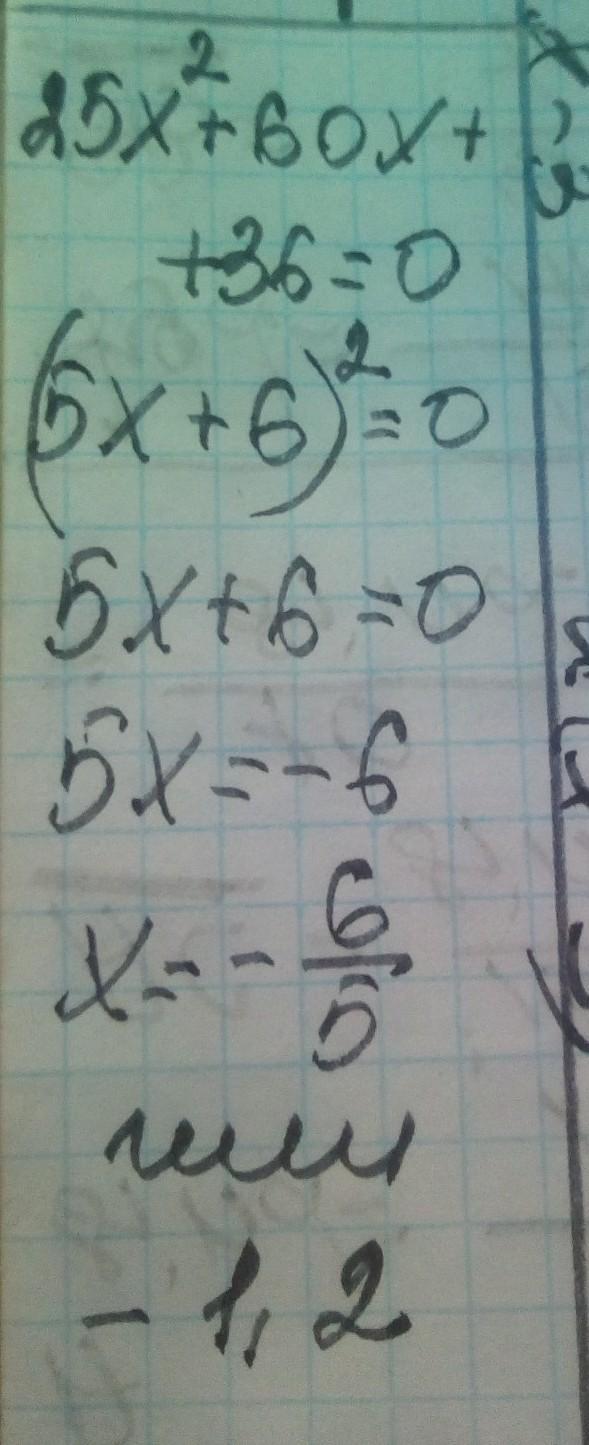 25x²+60x+
+36=0
(5x+6)²=0
5x+6=0
5x=-6
x=-6/5
или
-1,2